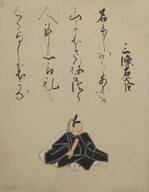 三條右大臣
名にしおはゝあふさか
山のさねかつら
人にしられて
くるよしもかな